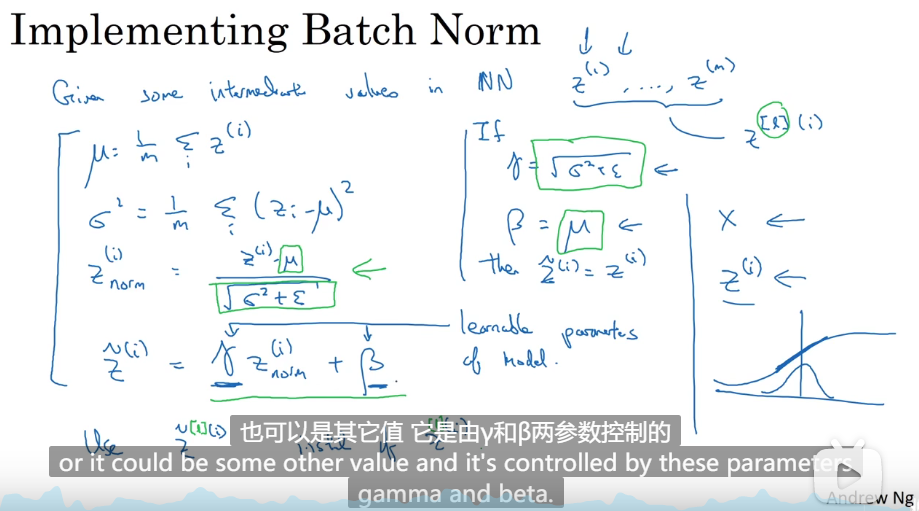 Implementing Batch Norm
Given some intermediate values in NN z^(i), ..., z^(m)
z^[l](i)
μ = 1/m Σ_i z^(i)
σ² = 1/m Σ_i (z_i - μ)²
z^(i)_norm = (z^(i) - μ) / √(σ² + ε)
z̃^(i) = γ z^(i)_norm + β
If
γ = √(σ² + ε) ←
β = μ ←
then z̃^(i) = z^(i)
learnable parameters
of model.
X ←
z^(i) ←
Use z̃^[l](i)
也可以是其它值 它是由γ和β两参数控制的
or it could be some other value and it's controlled by these parameters
gamma and beta.
Andrew Ng